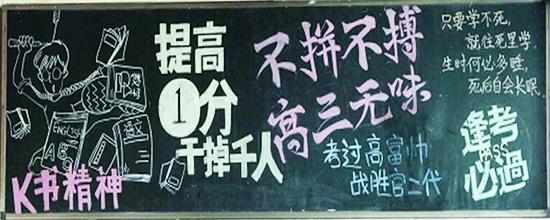 K书精神
提高
1分
干掉千人
不拼不搏
高三无味
考过高富帅
战胜官二代
只要学不死,
就往死里学,
生时何必多睡,
死后自会长眠.
逢考
PASS
必過
ENGLISH